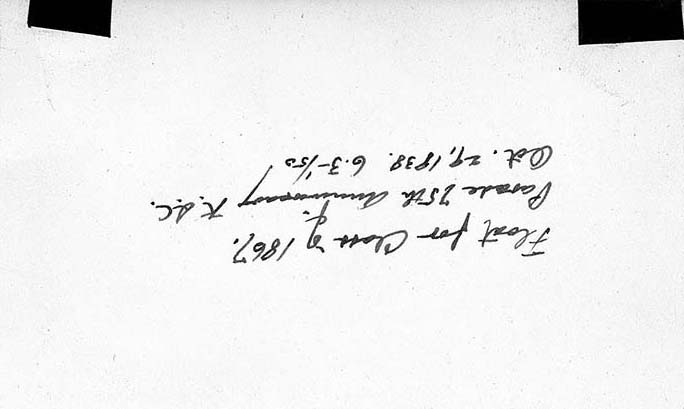 Float for Class of 1867.
Parade 75th Anniversary K.S.C.
Oct. 29, 1938. 6.3-1/50